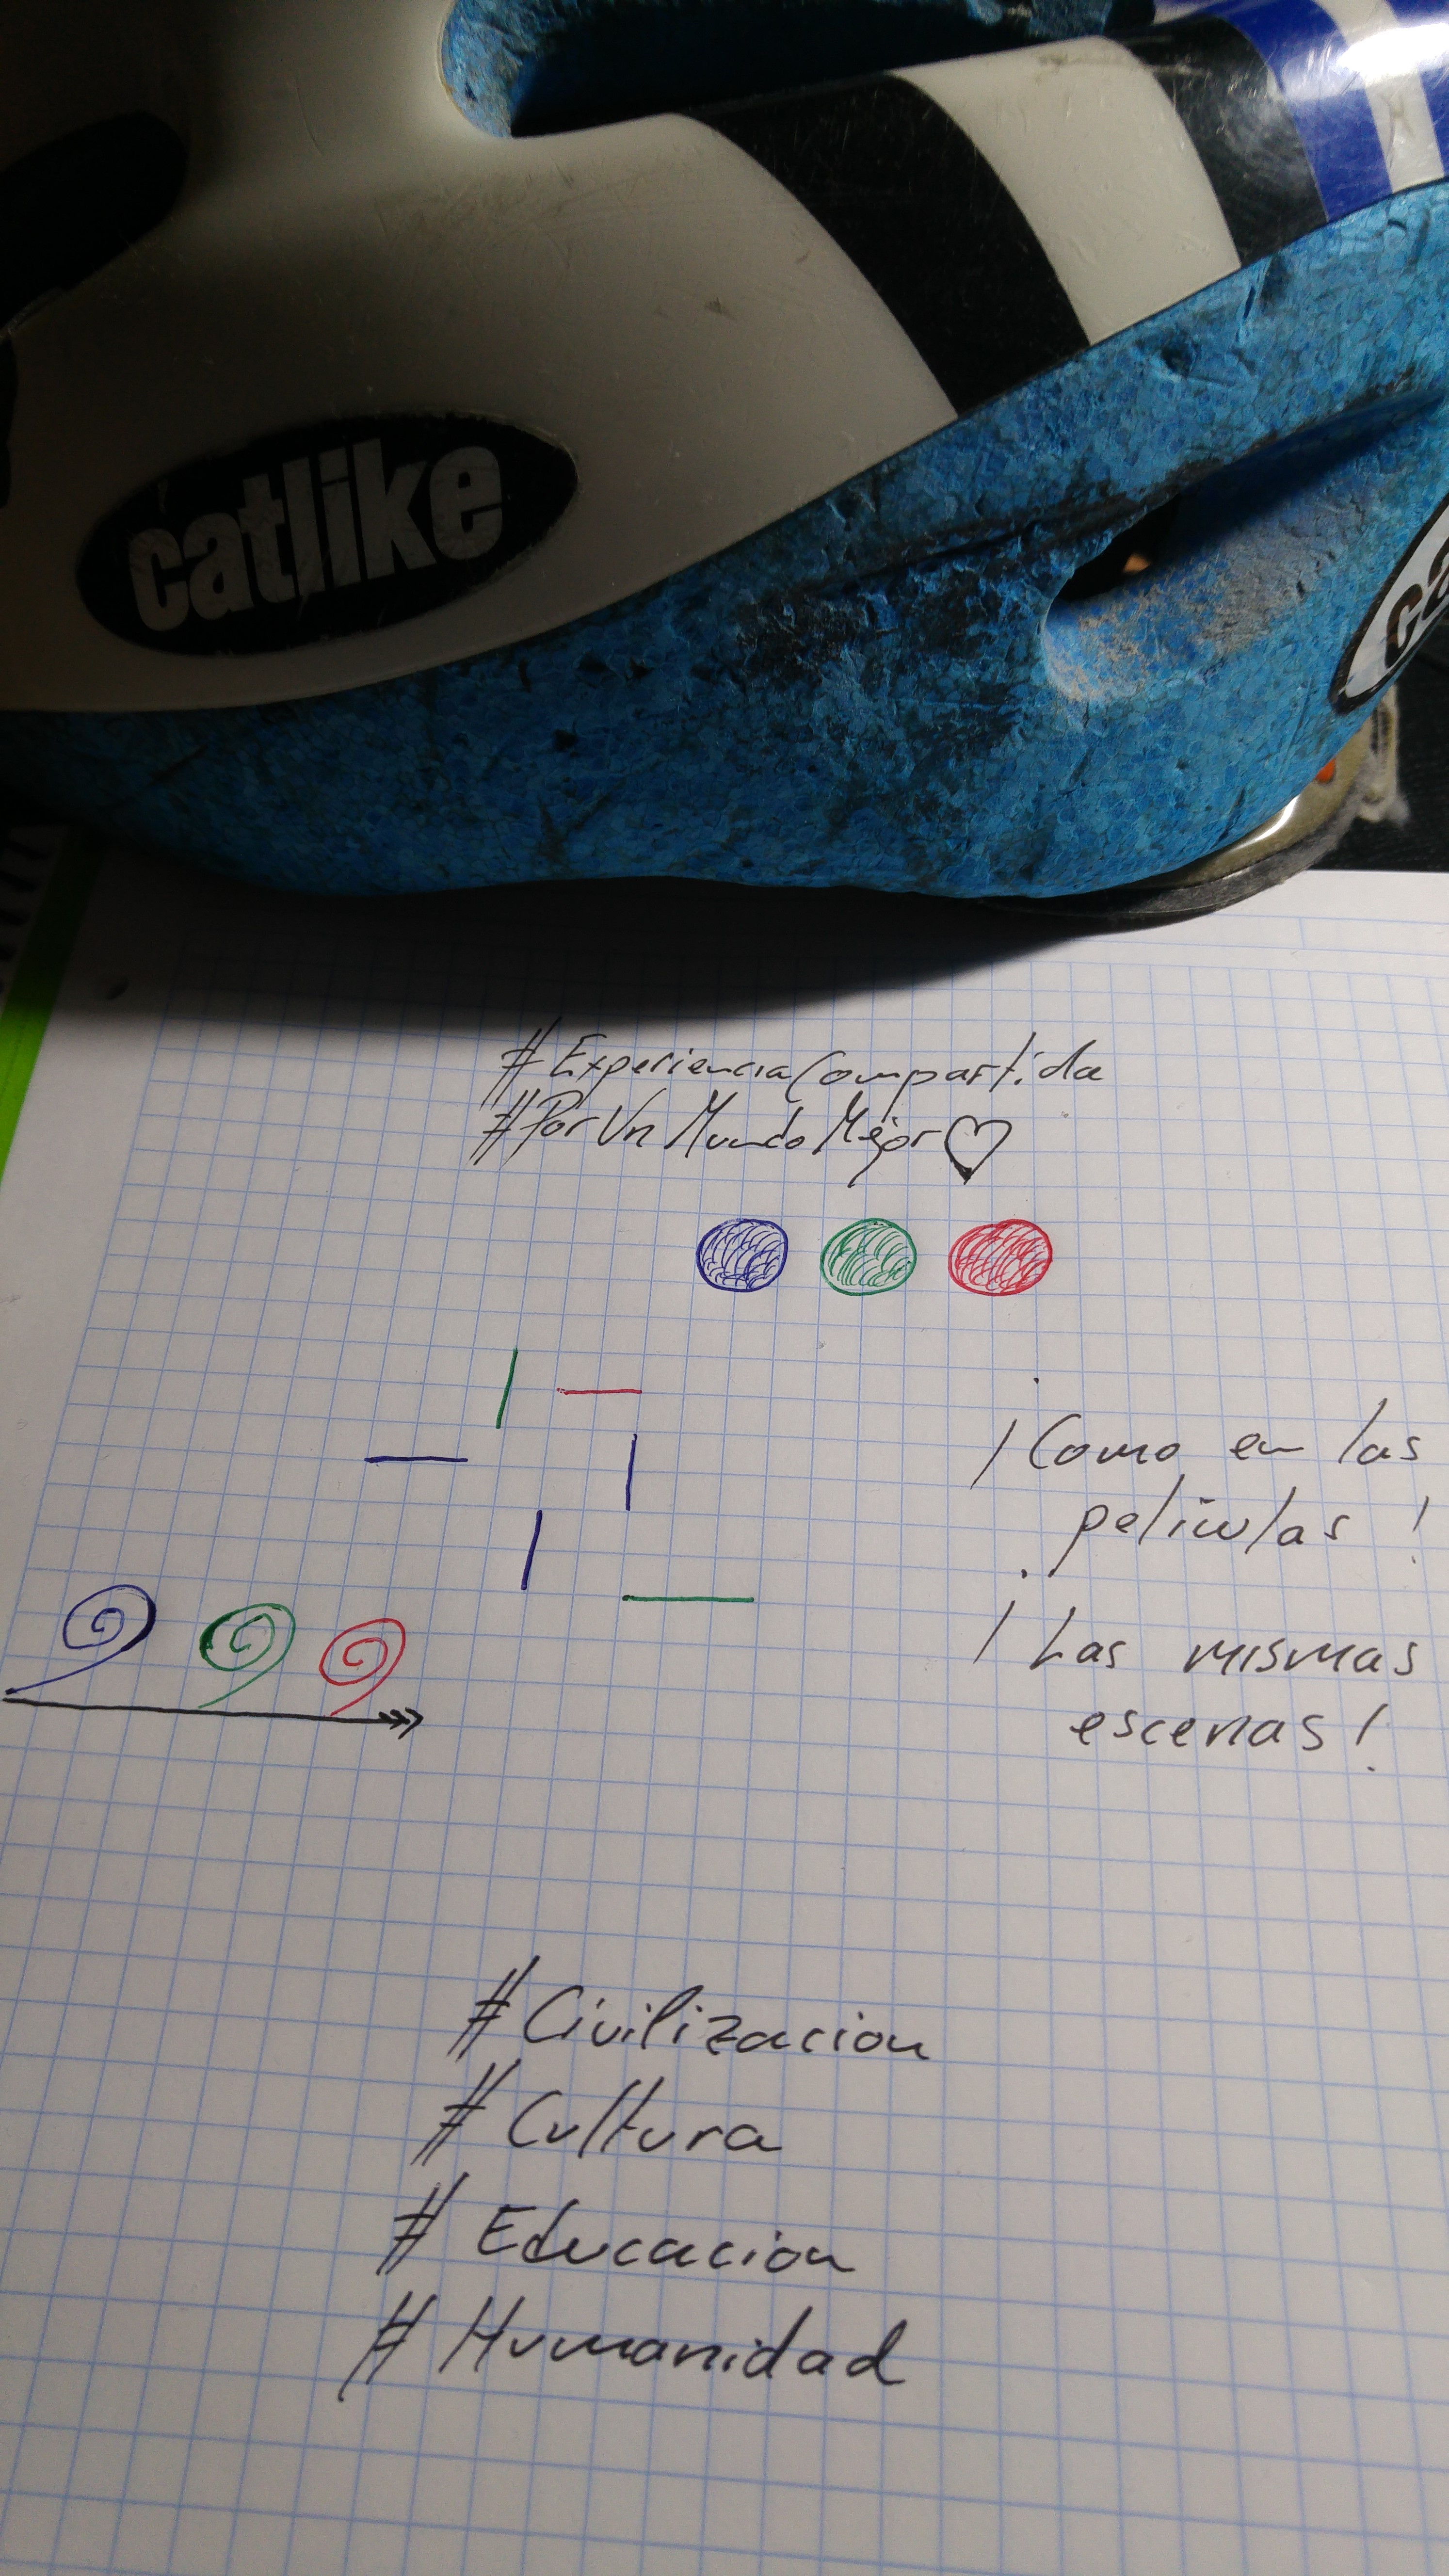 catlike
ca
#ExperienciaCompartida
#PorUnMundoMejor♡
¡Como en las
películas!
¡Las mismas
escenas!
#Civilizacion
#Cultura
#Educacion
#Humanidad